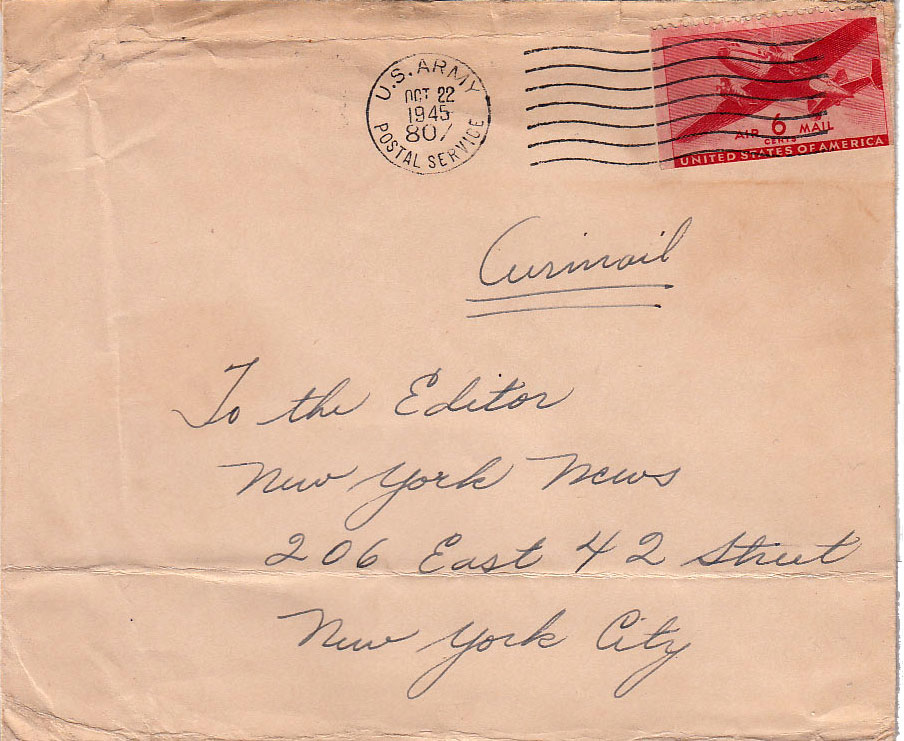 U.S. ARMY
OCT 22
1945
807
POSTAL SERVICE
AIR 6 MAIL
CENTS
UNITED STATES OF AMERICA
Airmail
To the Editor
New York News
206 East 42 Street
New York City